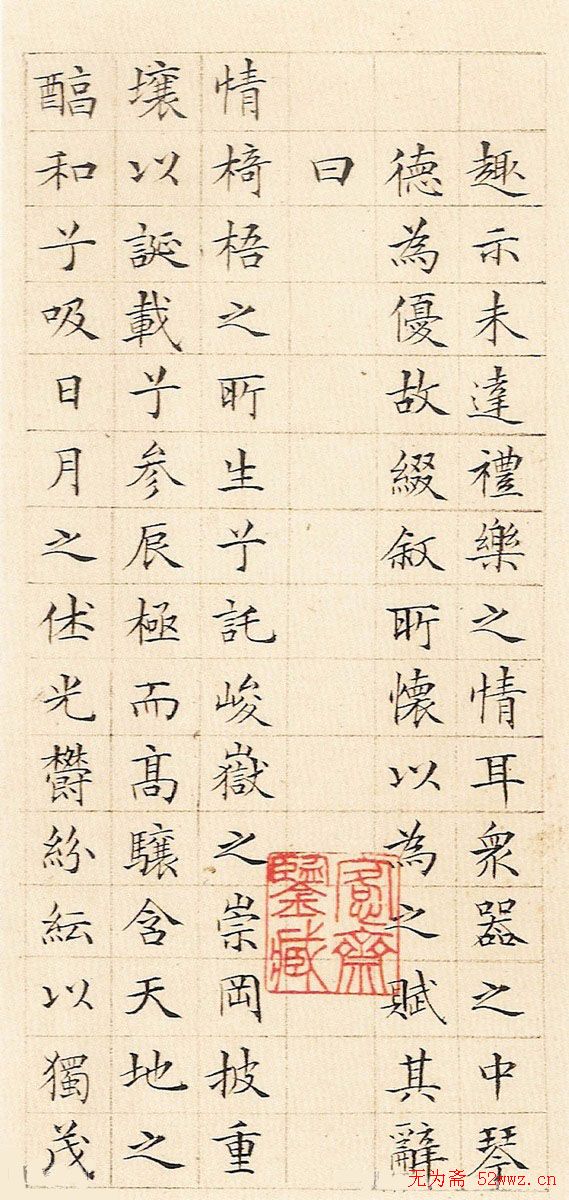 趣示未達禮樂之情耳衆器之中琴
德為優故綴叙所懷以為之賦其辭
曰
情椅梧之所生兮託峻嶽之崇岡披重
壤以誕載兮参辰極而髙驤含天地之
醕和兮吸日月之休光欝紛紜以獨茂
愙齋
鑒藏
无为斋 52wwz.cn